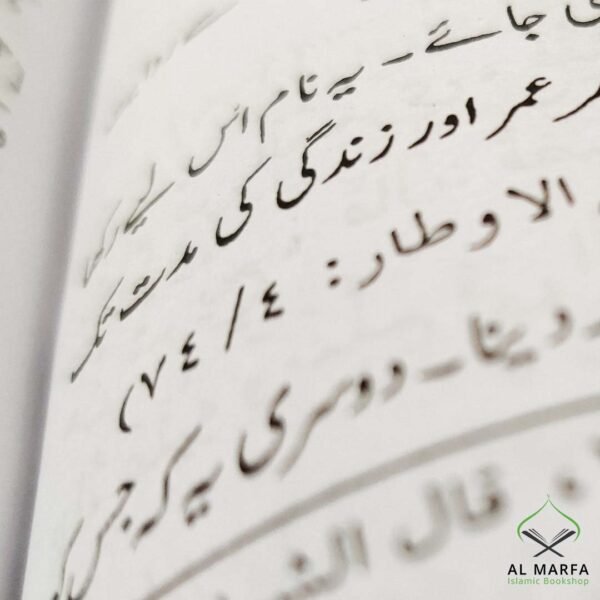 جائے ۔ یہ نام اس لیے
عمر اور زندگی کی مدت تک
الاوطار : ٤ / ٧٤)
دینا ۔ دوسری یہ کہ جس
قال
AL MARFA
Islamic Bookshop